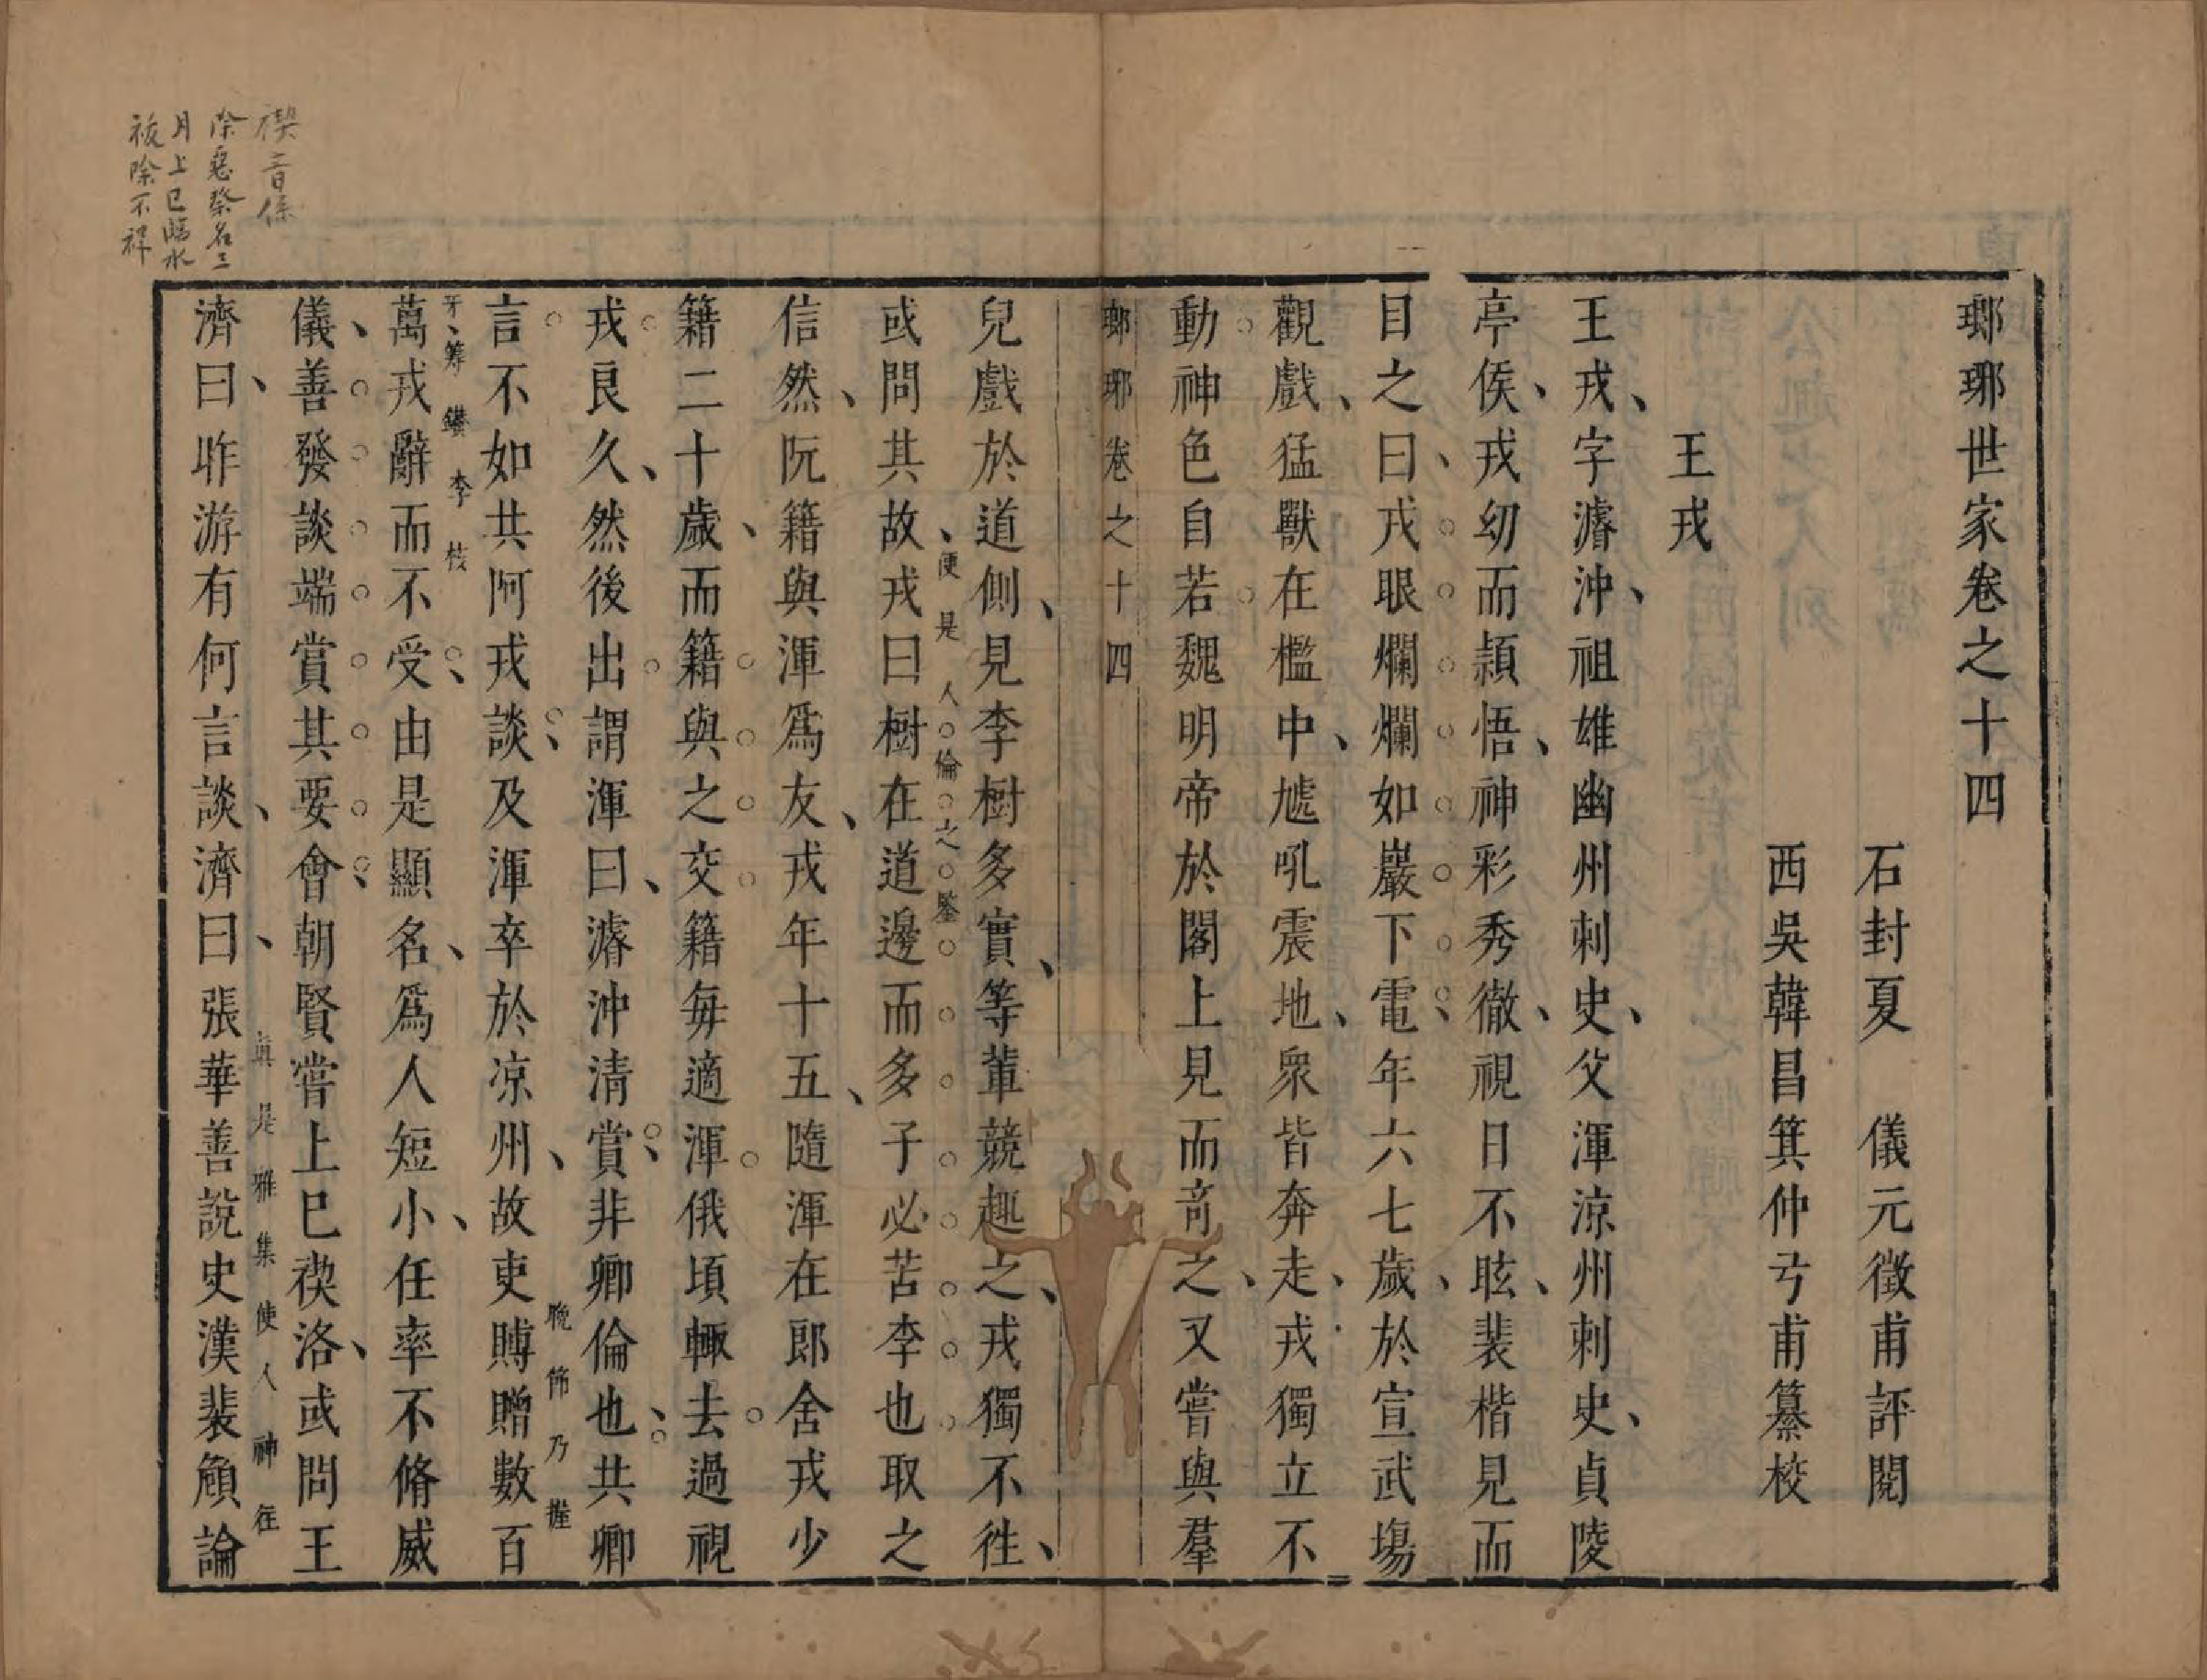 瑯琊世家卷之十四
石封夏　儀元徵甫評閱
西吳韓昌箕仲弓甫纂校
王戎
王戎字濬沖祖雄幽州刺史父渾涼州刺史貞陵
亭侯戎幼而穎悟神彩秀徹視日不眩裴楷見而
目之曰戎眼爛爛如巖下電年六七歲於宣武場
觀戲猛獸在檻中虓吼震地衆皆奔走戎獨立不
動神色自若魏明帝於閣上見而奇之又嘗與羣
瑯琊卷之十四
兒戲於道側見李樹多實等輩競趣之戎獨不徃
便是人倫之鑒
或問其故戎曰樹在道邊而多子必苦李也取之
信然阮籍與渾爲友戎年十五隨渾在郎舍戎少
籍二十歲而籍與之交籍每適渾俄頃輙去過視
戎良久然後出謂渾曰濬沖清賞非卿倫也共卿
晚節乃握
言不如共阿戎談及渾卒於凉州故吏賻贈數百
牙籌鑽李核
萬戎辭而不受由是顯名爲人短小任率不脩威
儀善發談端賞其要會朝賢嘗上巳禊洛或問王
真是雅集使人神往
濟曰昨游有何言談濟曰張華善說史漢裴頠論
禊音係
除惡祭名三
月上巳臨水
祓除不祥